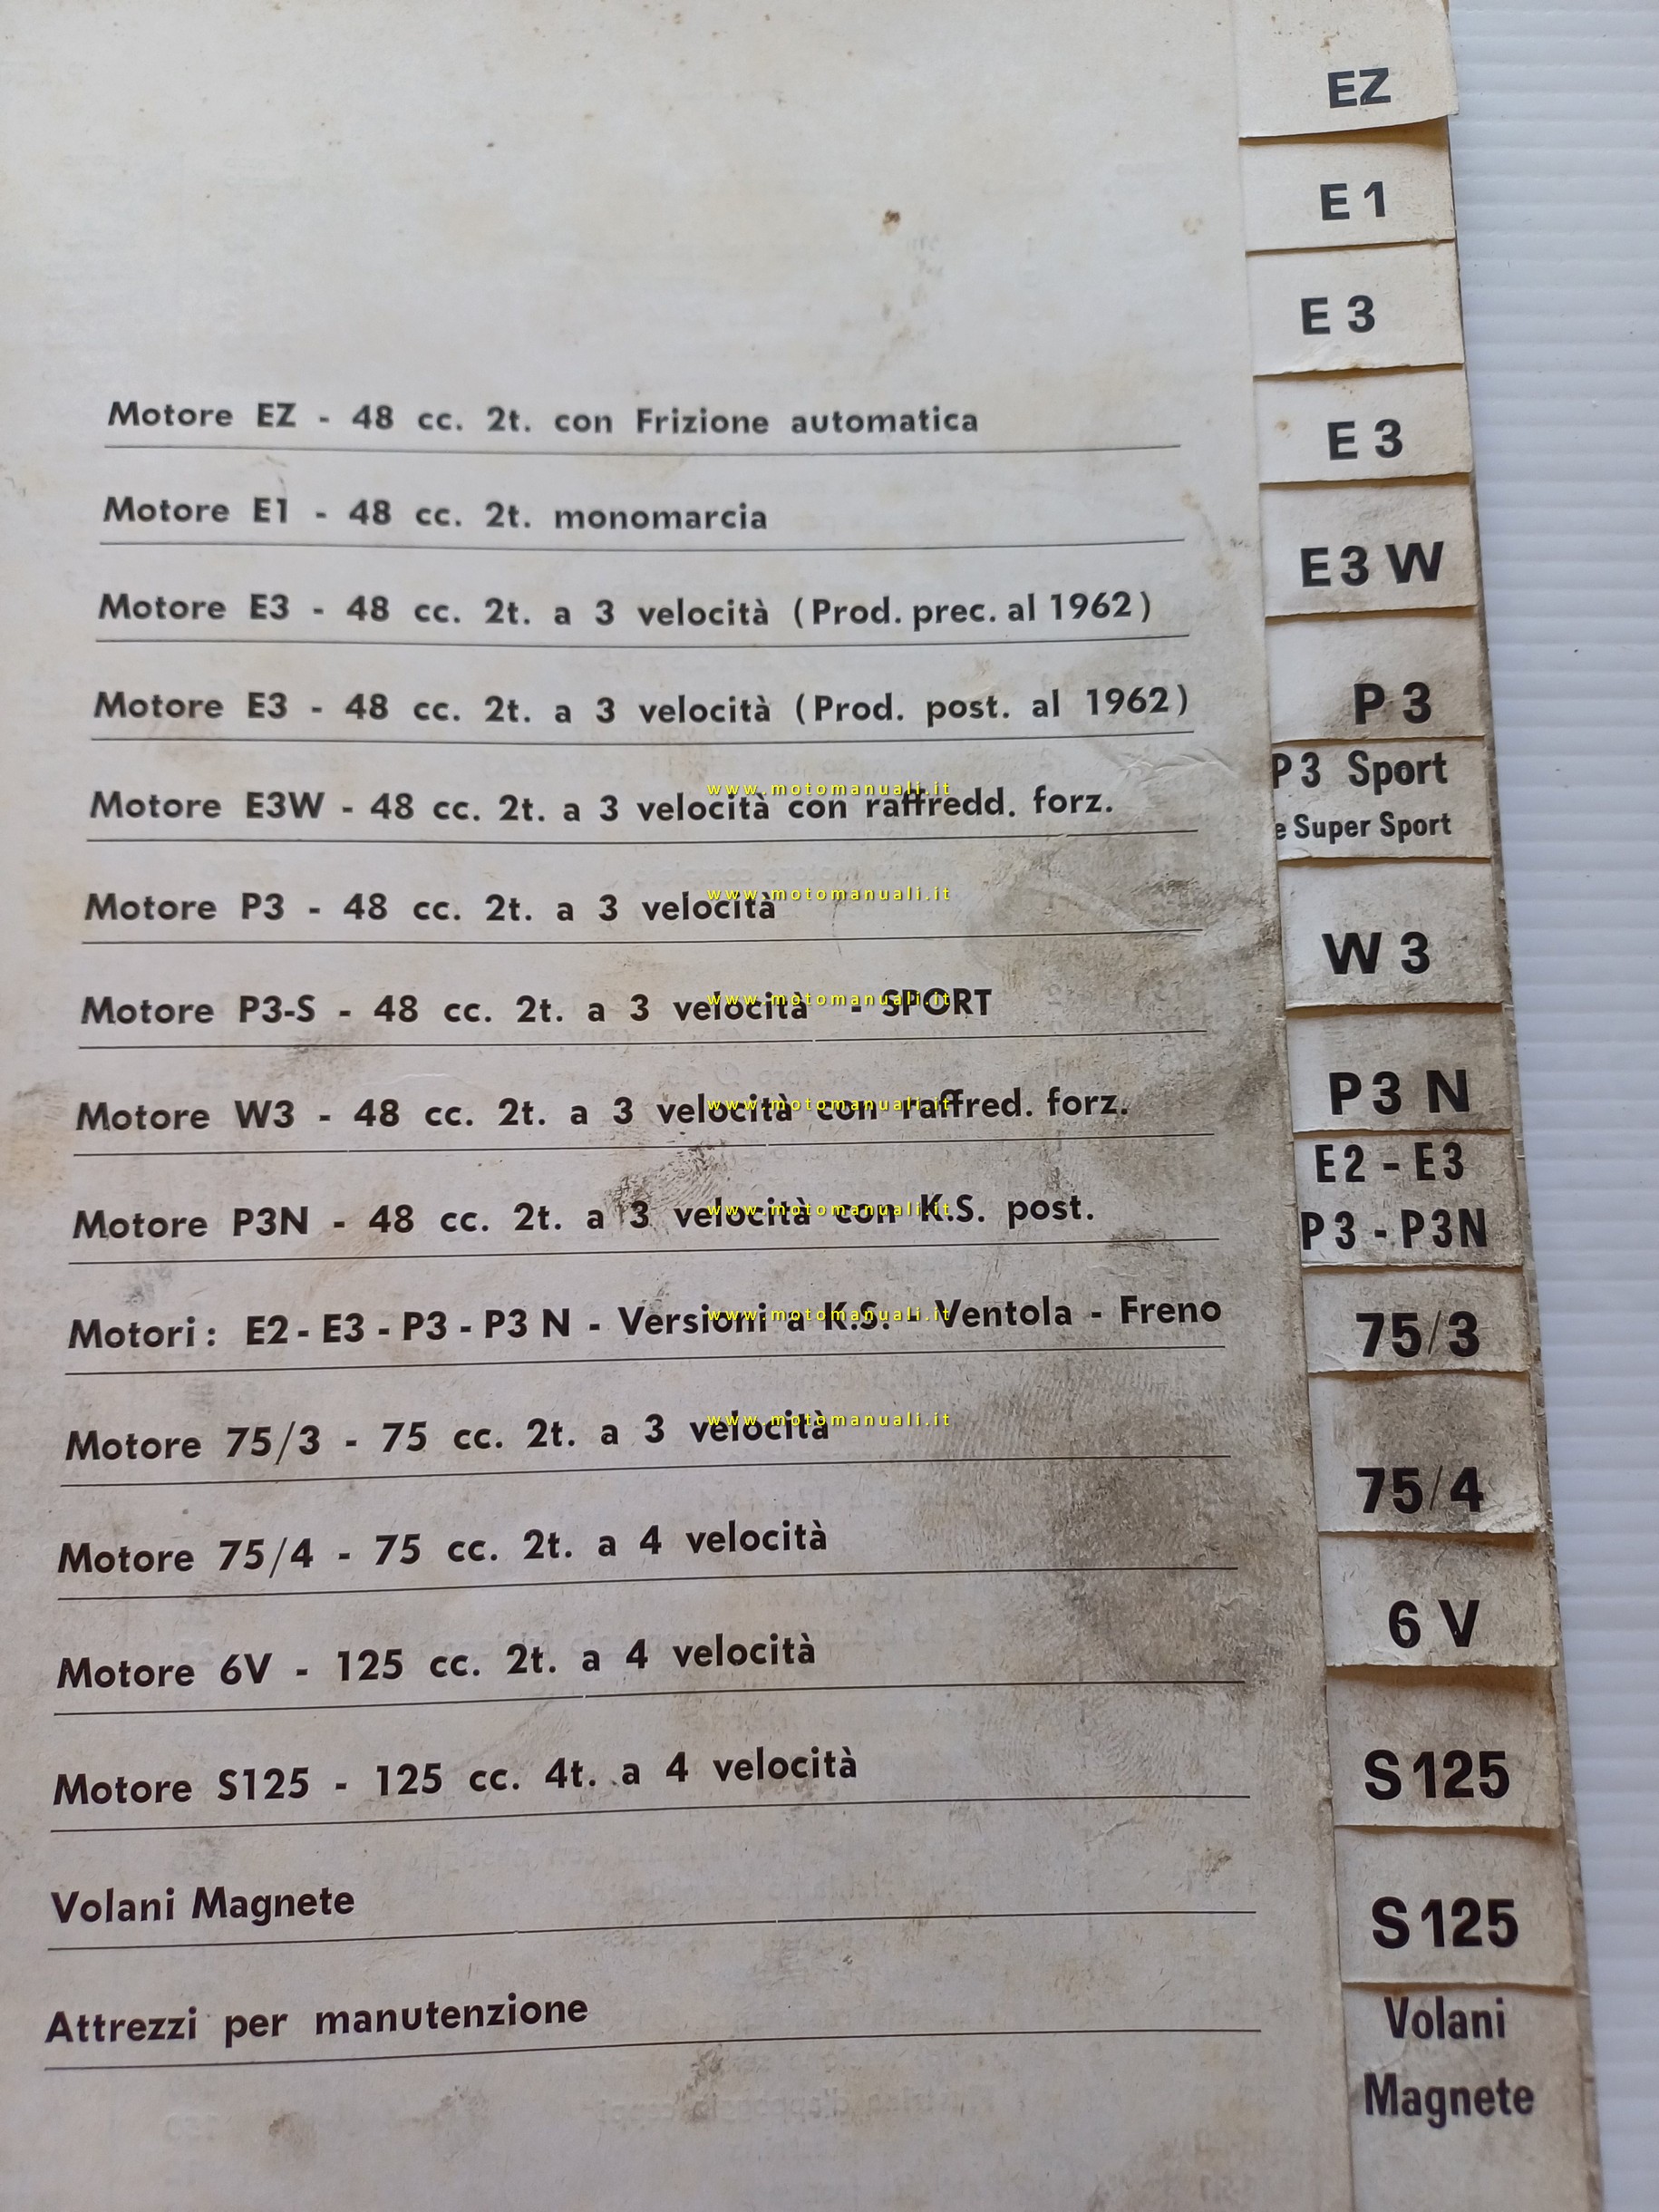 Motore EZ - 48 cc. 2t. con Frizione automatica
Motore E1 - 48 cc. 2t. monomarcia
Motore E3 - 48 cc. 2t. a 3 velocità (Prod. prec. al 1962)
Motore E3 - 48 cc. 2t. a 3 velocità (Prod. post. al 1962)
www.motomanuali.it
Motore E3W - 48 cc. 2t. a 3 velocità con raffredd. forz.
www.motomanuali.it
Motore P3 - 48 cc. 2t. a 3 velocità
www.motomanuali.it
Motore P3-S - 48 cc. 2t. a 3 velocità - SPORT
www.motomanuali.it
Motore W3 - 48 cc. 2t. a 3 velocità con raffred. forz.
www.motomanuali.it
Motore P3N - 48 cc. 2t. a 3 velocità con K.S. post.
www.motomanuali.it
Motori: E2 - E3 - P3 - P3 N - Versioni a K.S. - Ventola - Freno
www.motomanuali.it
Motore 75/3 - 75 cc. 2t. a 3 velocità
Motore 75/4 - 75 cc. 2t. a 4 velocità
Motore 6V - 125 cc. 2t. a 4 velocità
Motore S125 - 125 cc. 4t. a 4 velocità
Volani Magnete
Attrezzi per manutenzione
EZ
E 1
E 3
E 3
E3 W
P 3
P3 Sport
e Super Sport
W 3
P3 N
E2 - E3
P3 - P3N
75/3
75/4
6 V
S 125
S 125
Volani
Magnete